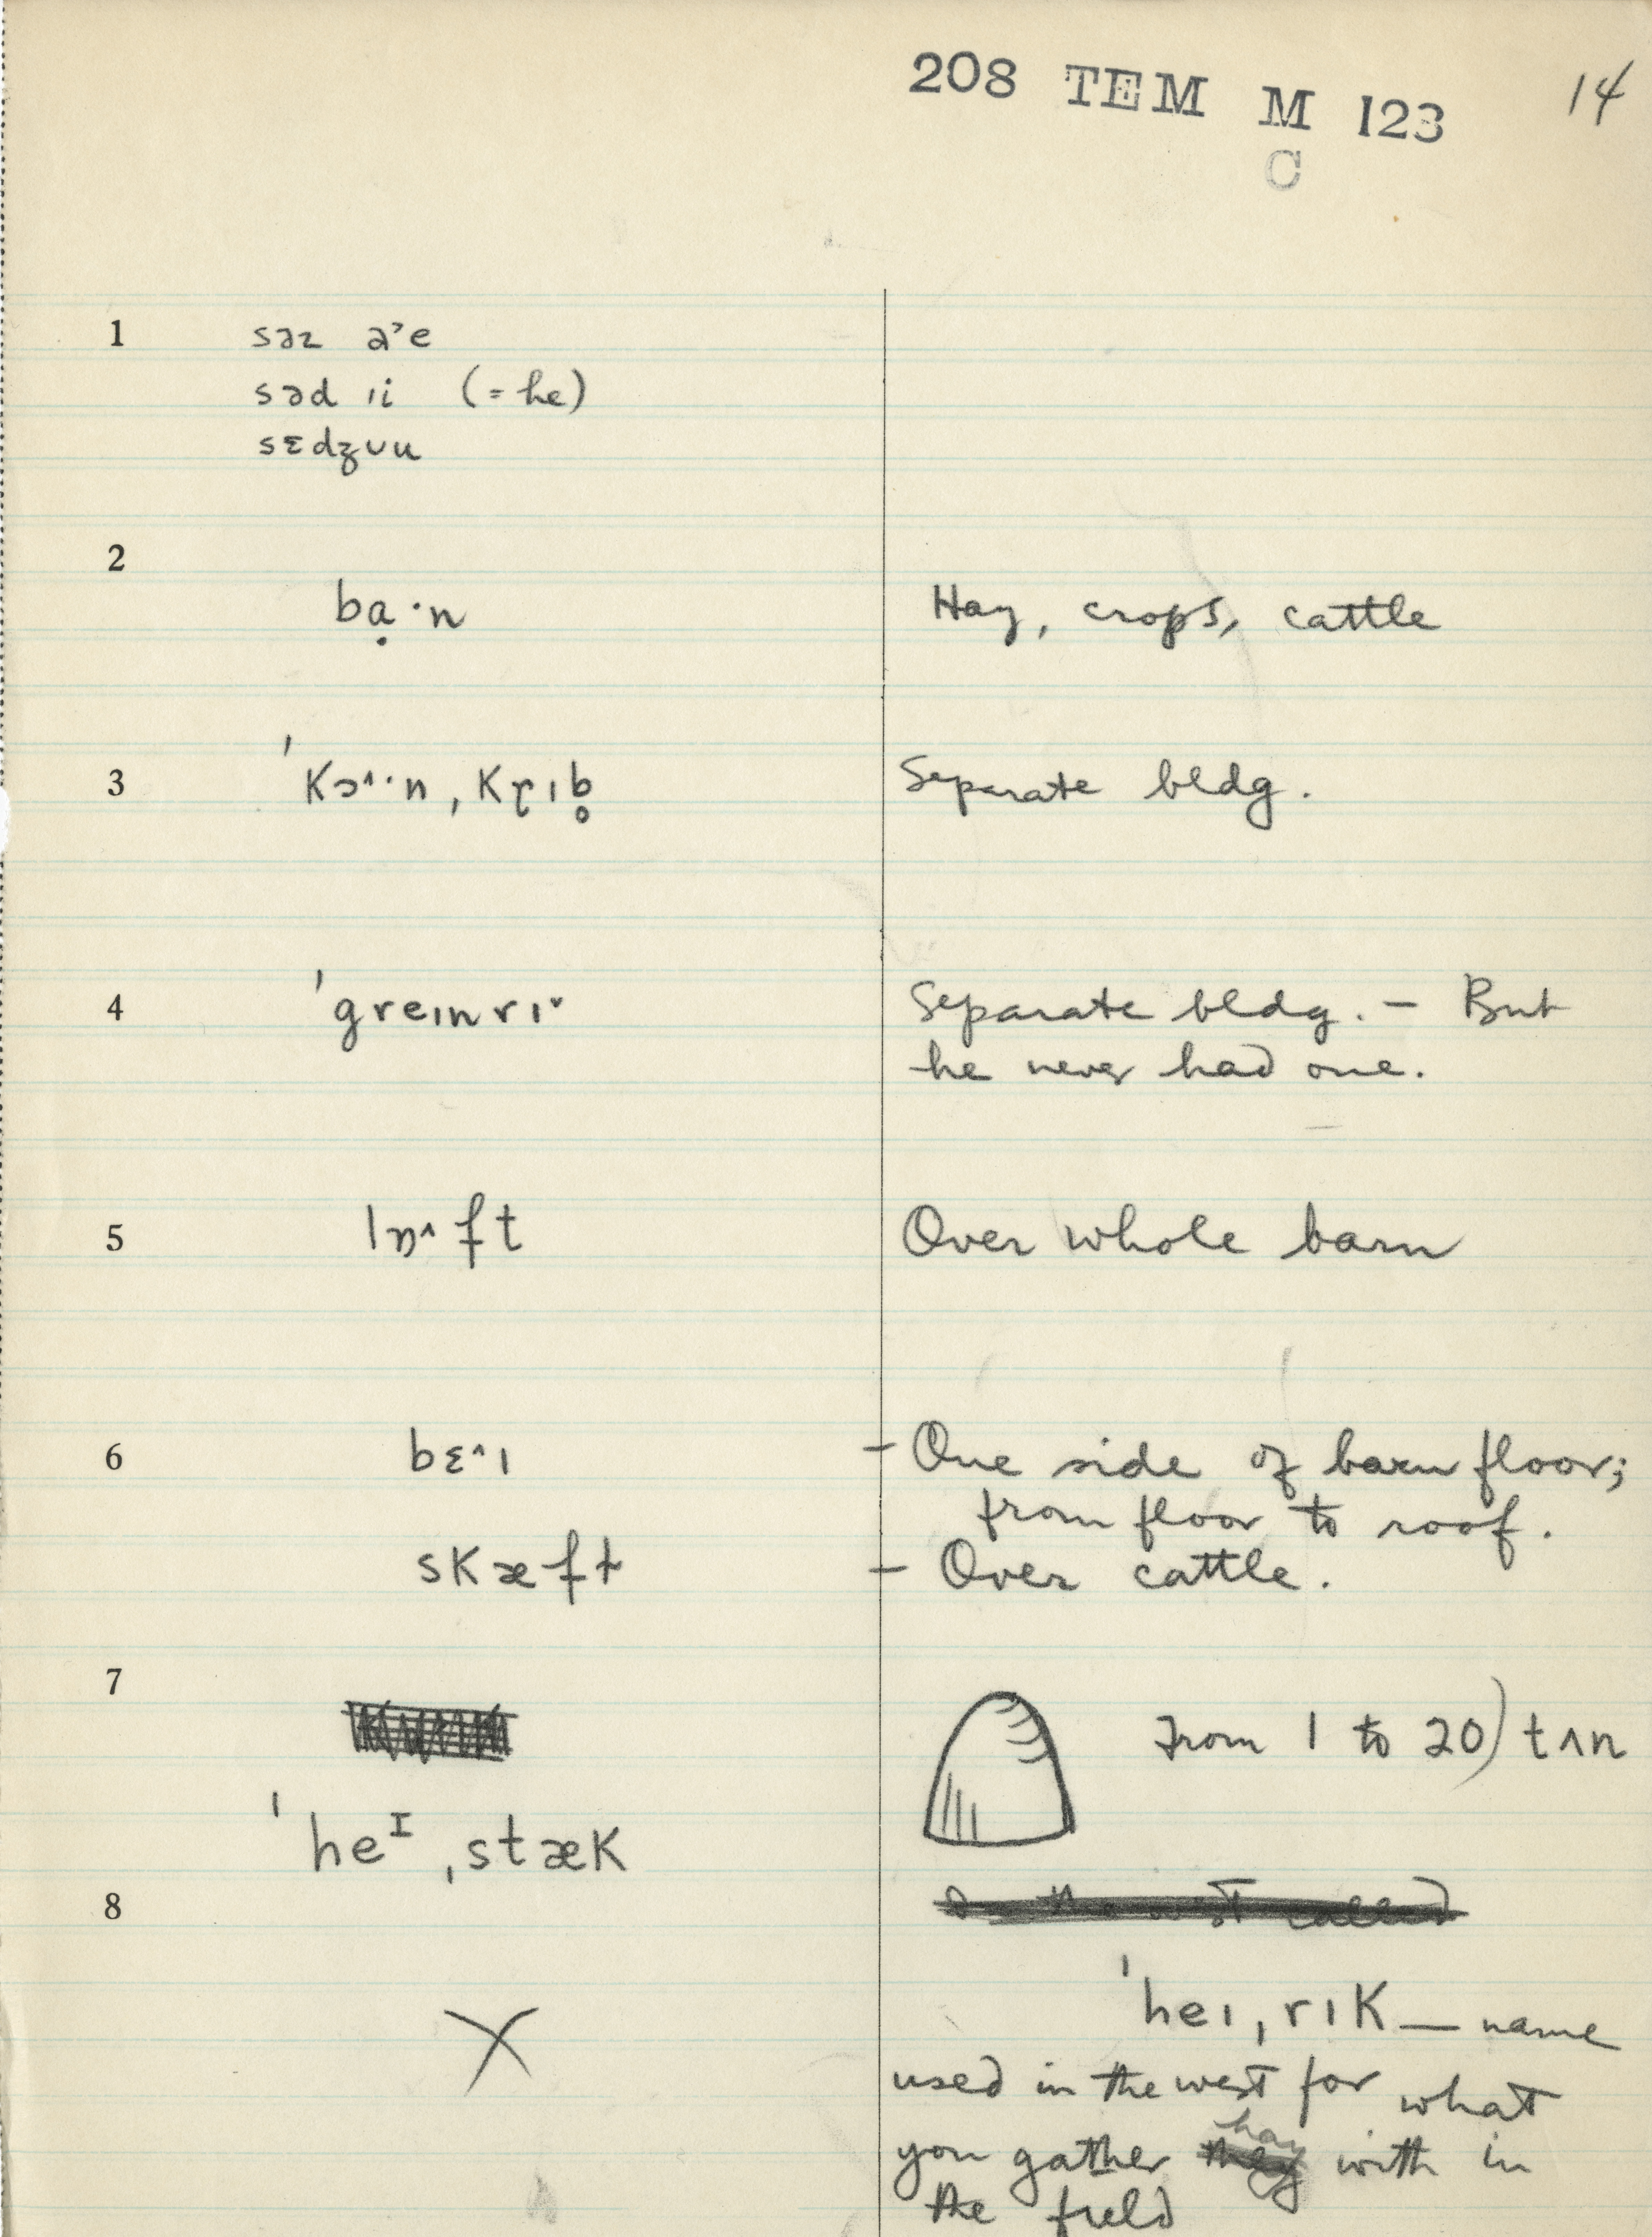 208 TEM M 123 14
C
1 səz ə'e
səd ıi (= he)
sɛdʒʊu
2
bạ·n Hay, crops, cattle
3 ˈKɔ^·n ˌKɽıb̥ Separate bldg.
4 ˈgreınrıˇ Separate bldg. – But
he never had one.
5 lɒ^ft Over whole barn
6 bɛ^ı – One side of barn floor;
from floor to roof.
sKæft – Over cattle.
7
From 1 to 20) tʌn
ˈheᴵˌstæK
8 In the west called
X
ˈheıˌrıK — name
used in the west for what
you gather hay with in
the field